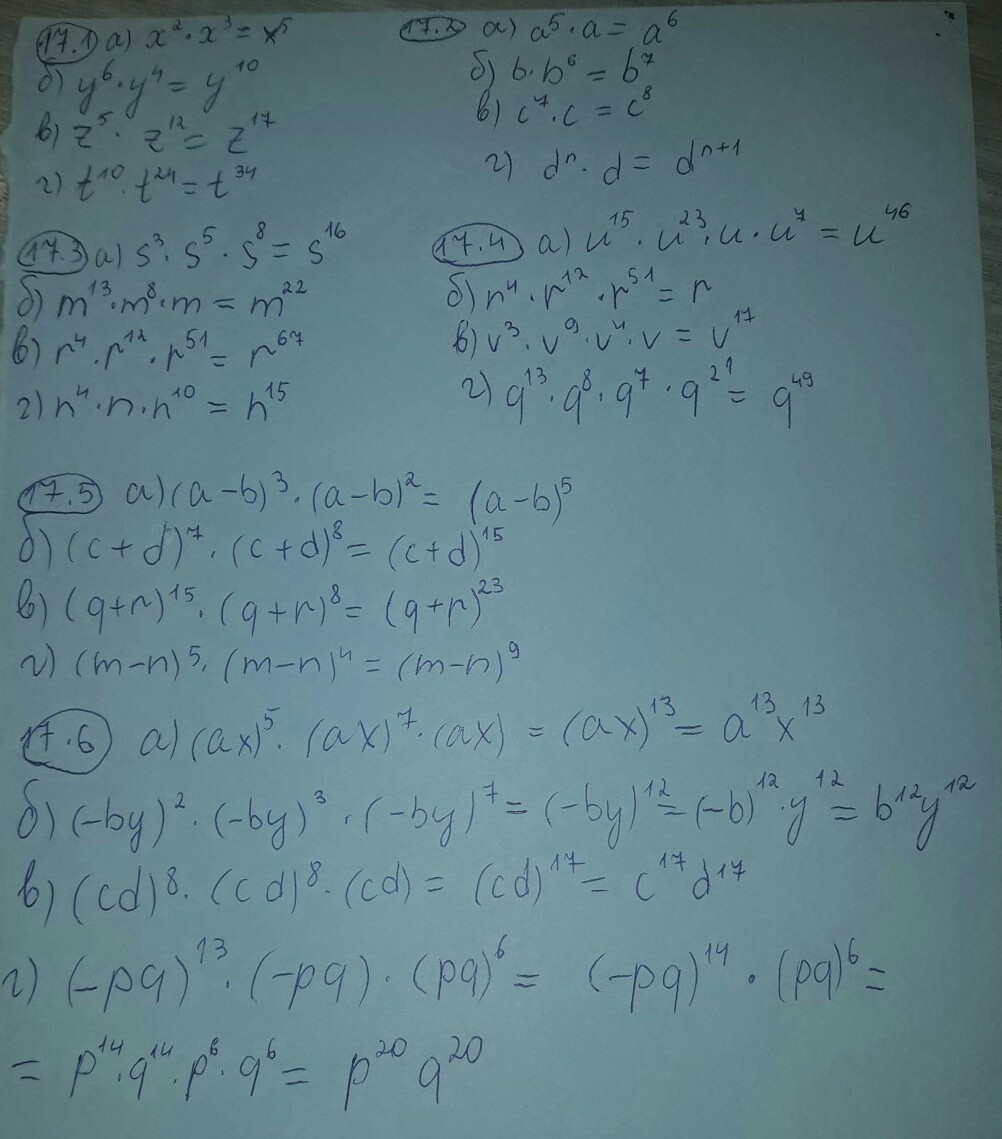 17.1 а) x²·x³=x⁵
б) y⁶·y⁴=y¹⁰
в) z⁵·z¹²=z¹⁷
г) t¹⁰·t²⁴=t³⁴
17.2 а) a⁵·a=a⁶
б) b·b⁶=b⁷
в) c⁷·c=c⁸
г) dⁿ·d=dⁿ⁺¹
17.3 а) s³·s⁵·s⁸=s¹⁶
б) m¹³·m⁸·m=m²²
в) r⁴·r¹²·r⁵¹=r⁶⁷
г) n⁴·n·n¹⁰=n¹⁵
17.4 а) u¹⁵·u²³·u·u⁷=u⁴⁶
б) r⁴·r¹²·r⁵¹=r
в) v³·v⁹·v⁴·v=v¹⁷
г) q¹³·q⁸·q⁷·q²¹=q⁴⁹
17.5 а) (a-b)³·(a-b)²=(a-b)⁵
б) (c+d)⁷·(c+d)⁸=(c+d)¹⁵
в) (q+r)¹⁵·(q+r)⁸=(q+r)²³
г) (m-n)⁵·(m-n)⁴=(m-n)⁹
17.6 а) (ax)⁵·(ax)⁷·(ax)=(ax)¹³=a¹³x¹³
б) (-by)²·(-by)³·(-by)⁷=(-by)¹²=(-b)¹²·y¹²=b¹²y¹²
в) (cd)⁸·(cd)⁸·(cd)=(cd)¹⁷=c¹⁷d¹⁷
г) (-pq)¹³·(-pq)·(pq)⁶=(-pq)¹⁴·(pq)⁶=
=p¹⁴·q¹⁴·p⁶·q⁶=p²⁰q²⁰